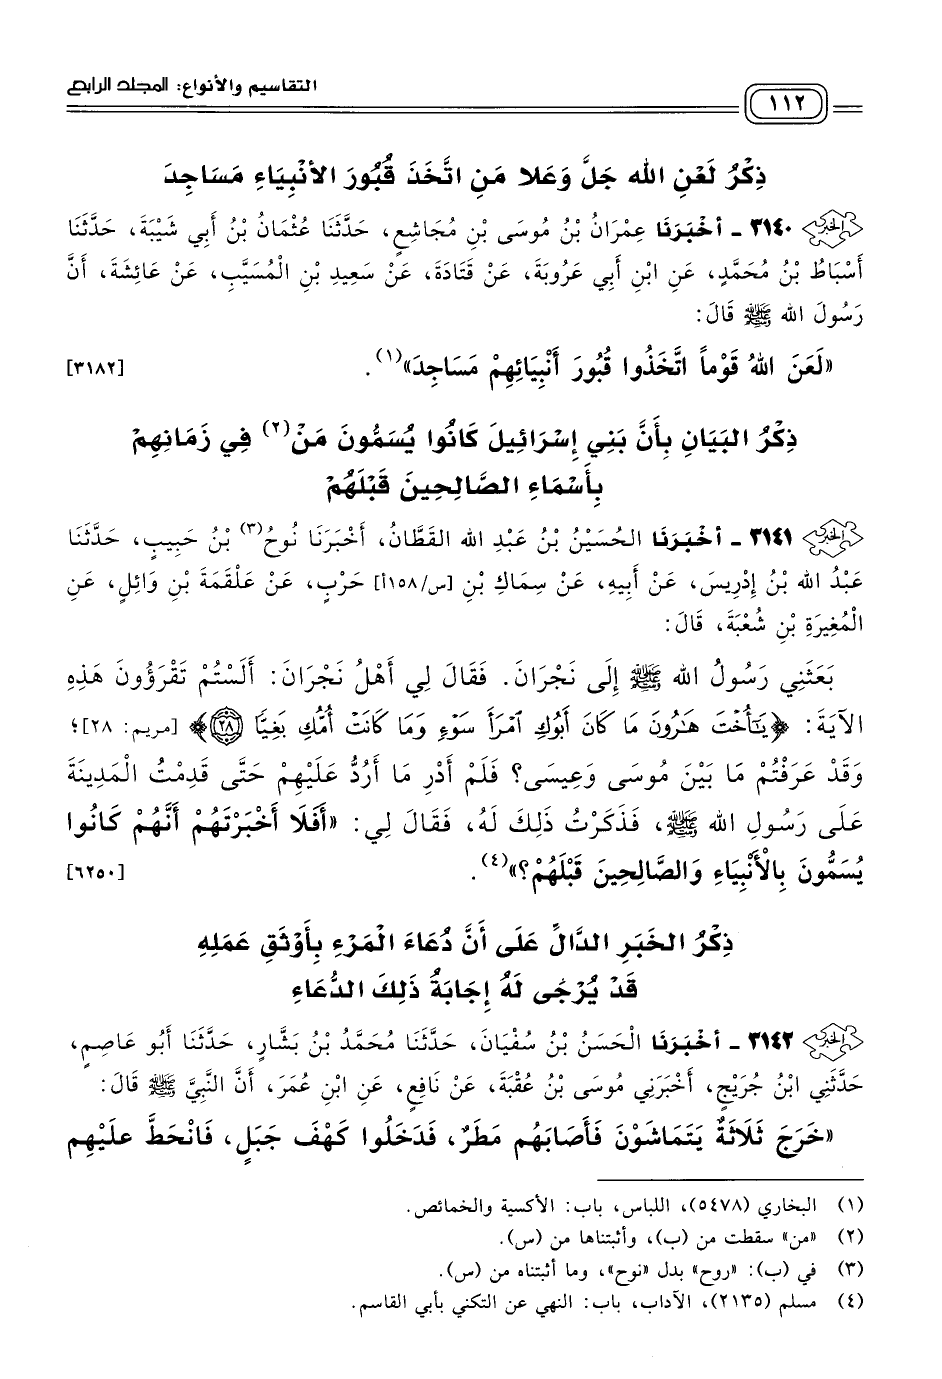 التقاسيم والأنواع: المجلد الرابع
١١٢
ذِكْرُ لَعْنِ الله جَلَّ وَعَلا مَنِ اتَّخَذَ قُبُورَ الأَنْبِيَاءِ مَسَاجِدَ
الخبر ٣١٤٠ - أَخْبَرَنَا عِمْرَانُ بْنُ مُوسَى بْنِ مُجَاشِعٍ، حَدَّثَنَا عُثْمَانُ بْنُ أَبِي شَيْبَةَ، حَدَّثَنَا
أَسْبَاطُ بْنُ مُحَمَّدٍ، عَنِ ابْنِ أَبِي عَرُوبَةَ، عَنْ قَتَادَةَ، عَنْ سَعِيدِ بْنِ الْمُسَيَّبِ، عَنْ عَائِشَةَ، أَنَّ
رَسُولَ الله ﷺ قَالَ:
«لَعَنَ اللهُ قَوْماً اتَّخَذُوا قُبُورَ أَنْبِيَائِهِمْ مَسَاجِدَ»(١). [٣١٨٢]
ذِكْرُ البَيَانِ بِأَنَّ بَنِي إِسْرَائِيلَ كَانُوا يُسَمُّونَ مَنْ(٢) فِي زَمَانِهِمْ
بِأَسْمَاءِ الصَّالِحِينَ قَبْلَهُمْ
الخبر ٣١٤١ - أَخْبَرَنَا الحُسَيْنُ بْنُ عَبْدِ الله القَطَّانُ، أَخْبَرَنَا نُوحُ(٣) بْنُ حَبِيبٍ، حَدَّثَنَا
عَبْدُ الله بْنُ إِدْرِيسَ، عَنْ أَبِيهِ، عَنْ سِمَاكِ بْنِ [س/١٥٨أ] حَرْبٍ، عَنْ عَلْقَمَةَ بْنِ وَائِلٍ، عَنِ
الْمُغِيرَةِ بْنِ شُعْبَةَ، قَالَ:
بَعَثَنِي رَسُولُ الله ﷺ إِلَى نَجْرَانَ. فَقَالَ لِي أَهْلُ نَجْرَانَ: أَلَسْتُمْ تَقْرَؤُونَ هَذِهِ
الآيَةَ: ﴿يَٰٓأُخْتَ هَٰرُونَ مَا كَانَ أَبُوكِ ٱمْرَأَ سَوْءٍ وَمَا كَانَتْ أُمُّكِ بَغِيًّا ٢٨﴾ [مريم: ٢٨]؛
وَقَدْ عَرَفْتُمْ مَا بَيْنَ مُوسَى وَعِيسَى؟ فَلَمْ أَدْرِ مَا أَرُدُّ عَلَيْهِمْ حَتَّى قَدِمْتُ الْمَدِينَةَ
عَلَى رَسُولِ الله ﷺ، فَذَكَرْتُ ذَلِكَ لَهُ، فَقَالَ لِي: «أَفَلَا أَخْبَرْتَهُمْ أَنَّهُمْ كَانُوا
يُسَمُّونَ بِالْأَنْبِيَاءِ وَالصَّالِحِينَ قَبْلَهُمْ؟»(٤). [٦٢٥٠]
ذِكْرُ الخَبَرِ الدَّالِّ عَلَى أَنَّ دُعَاءَ الْمَرْءِ بِأَوْثَقِ عَمَلِهِ
قَدْ يُرْجَى لَهُ إِجَابَةُ ذَلِكَ الدُّعَاءِ
الخبر ٣١٤٢ - أَخْبَرَنَا الْحَسَنُ بْنُ سُفْيَانَ، حَدَّثَنَا مُحَمَّدُ بْنُ بَشَّارٍ، حَدَّثَنَا أَبُو عَاصِمٍ،
حَدَّثَنِي ابْنُ جُرَيْجٍ، أَخْبَرَنِي مُوسَى بْنُ عُقْبَةَ، عَنْ نَافِعٍ، عَنِ ابْنِ عُمَرَ، أَنَّ النَّبِيَّ ﷺ قَالَ:
«خَرَجَ ثَلَاثَةٌ يَتَمَاشَوْنَ فَأَصَابَهُم مَطَرٌ، فَدَخَلُوا كَهْفَ جَبَلٍ، فَانْحَطَّ علَيْهِم
(١) البخاري (٥٤٧٨)، اللباس، باب: الأكسية والخمائص.
(٢) «من» سقطت من (ب)، وأثبتناها من (س).
(٣) في (ب): «روح» بدل «نوح»، وما أثبتناه من (س).
(٤) مسلم (٢١٣٥)، الآداب، باب: النهي عن التكني بأبي القاسم.